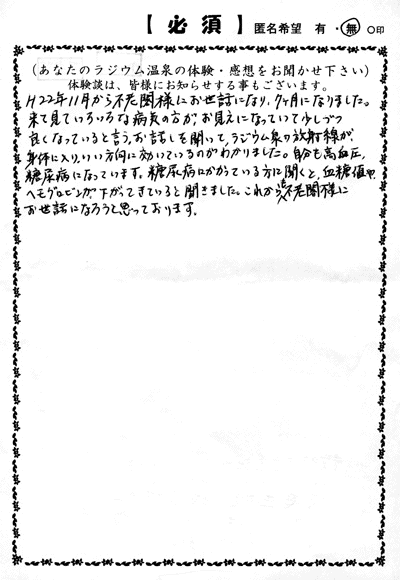 【必須】 匿名希望 有・無 ○印
(あなたのラジウム温泉の体験・感想をお聞かせ下さい)
体験談は、皆様にお知らせする事もございます。
H22年11月から不老閣様にお世話になり、7ヶ月になりました。
来て見ていろいろな病気の方がお見えになっていて少しづつ
良くなっていると言うお話しを聞いて、ラジウム泉の放射線が、
身体に入り、いい方向に効いているのがわかりました。自分も高血圧、
糖尿病になっています。糖尿病にかかっている方に聞くと、血糖値や
ヘモグロビンが下がってきていると聞きました。これからも不老閣様に
お世話になろうと思っております。